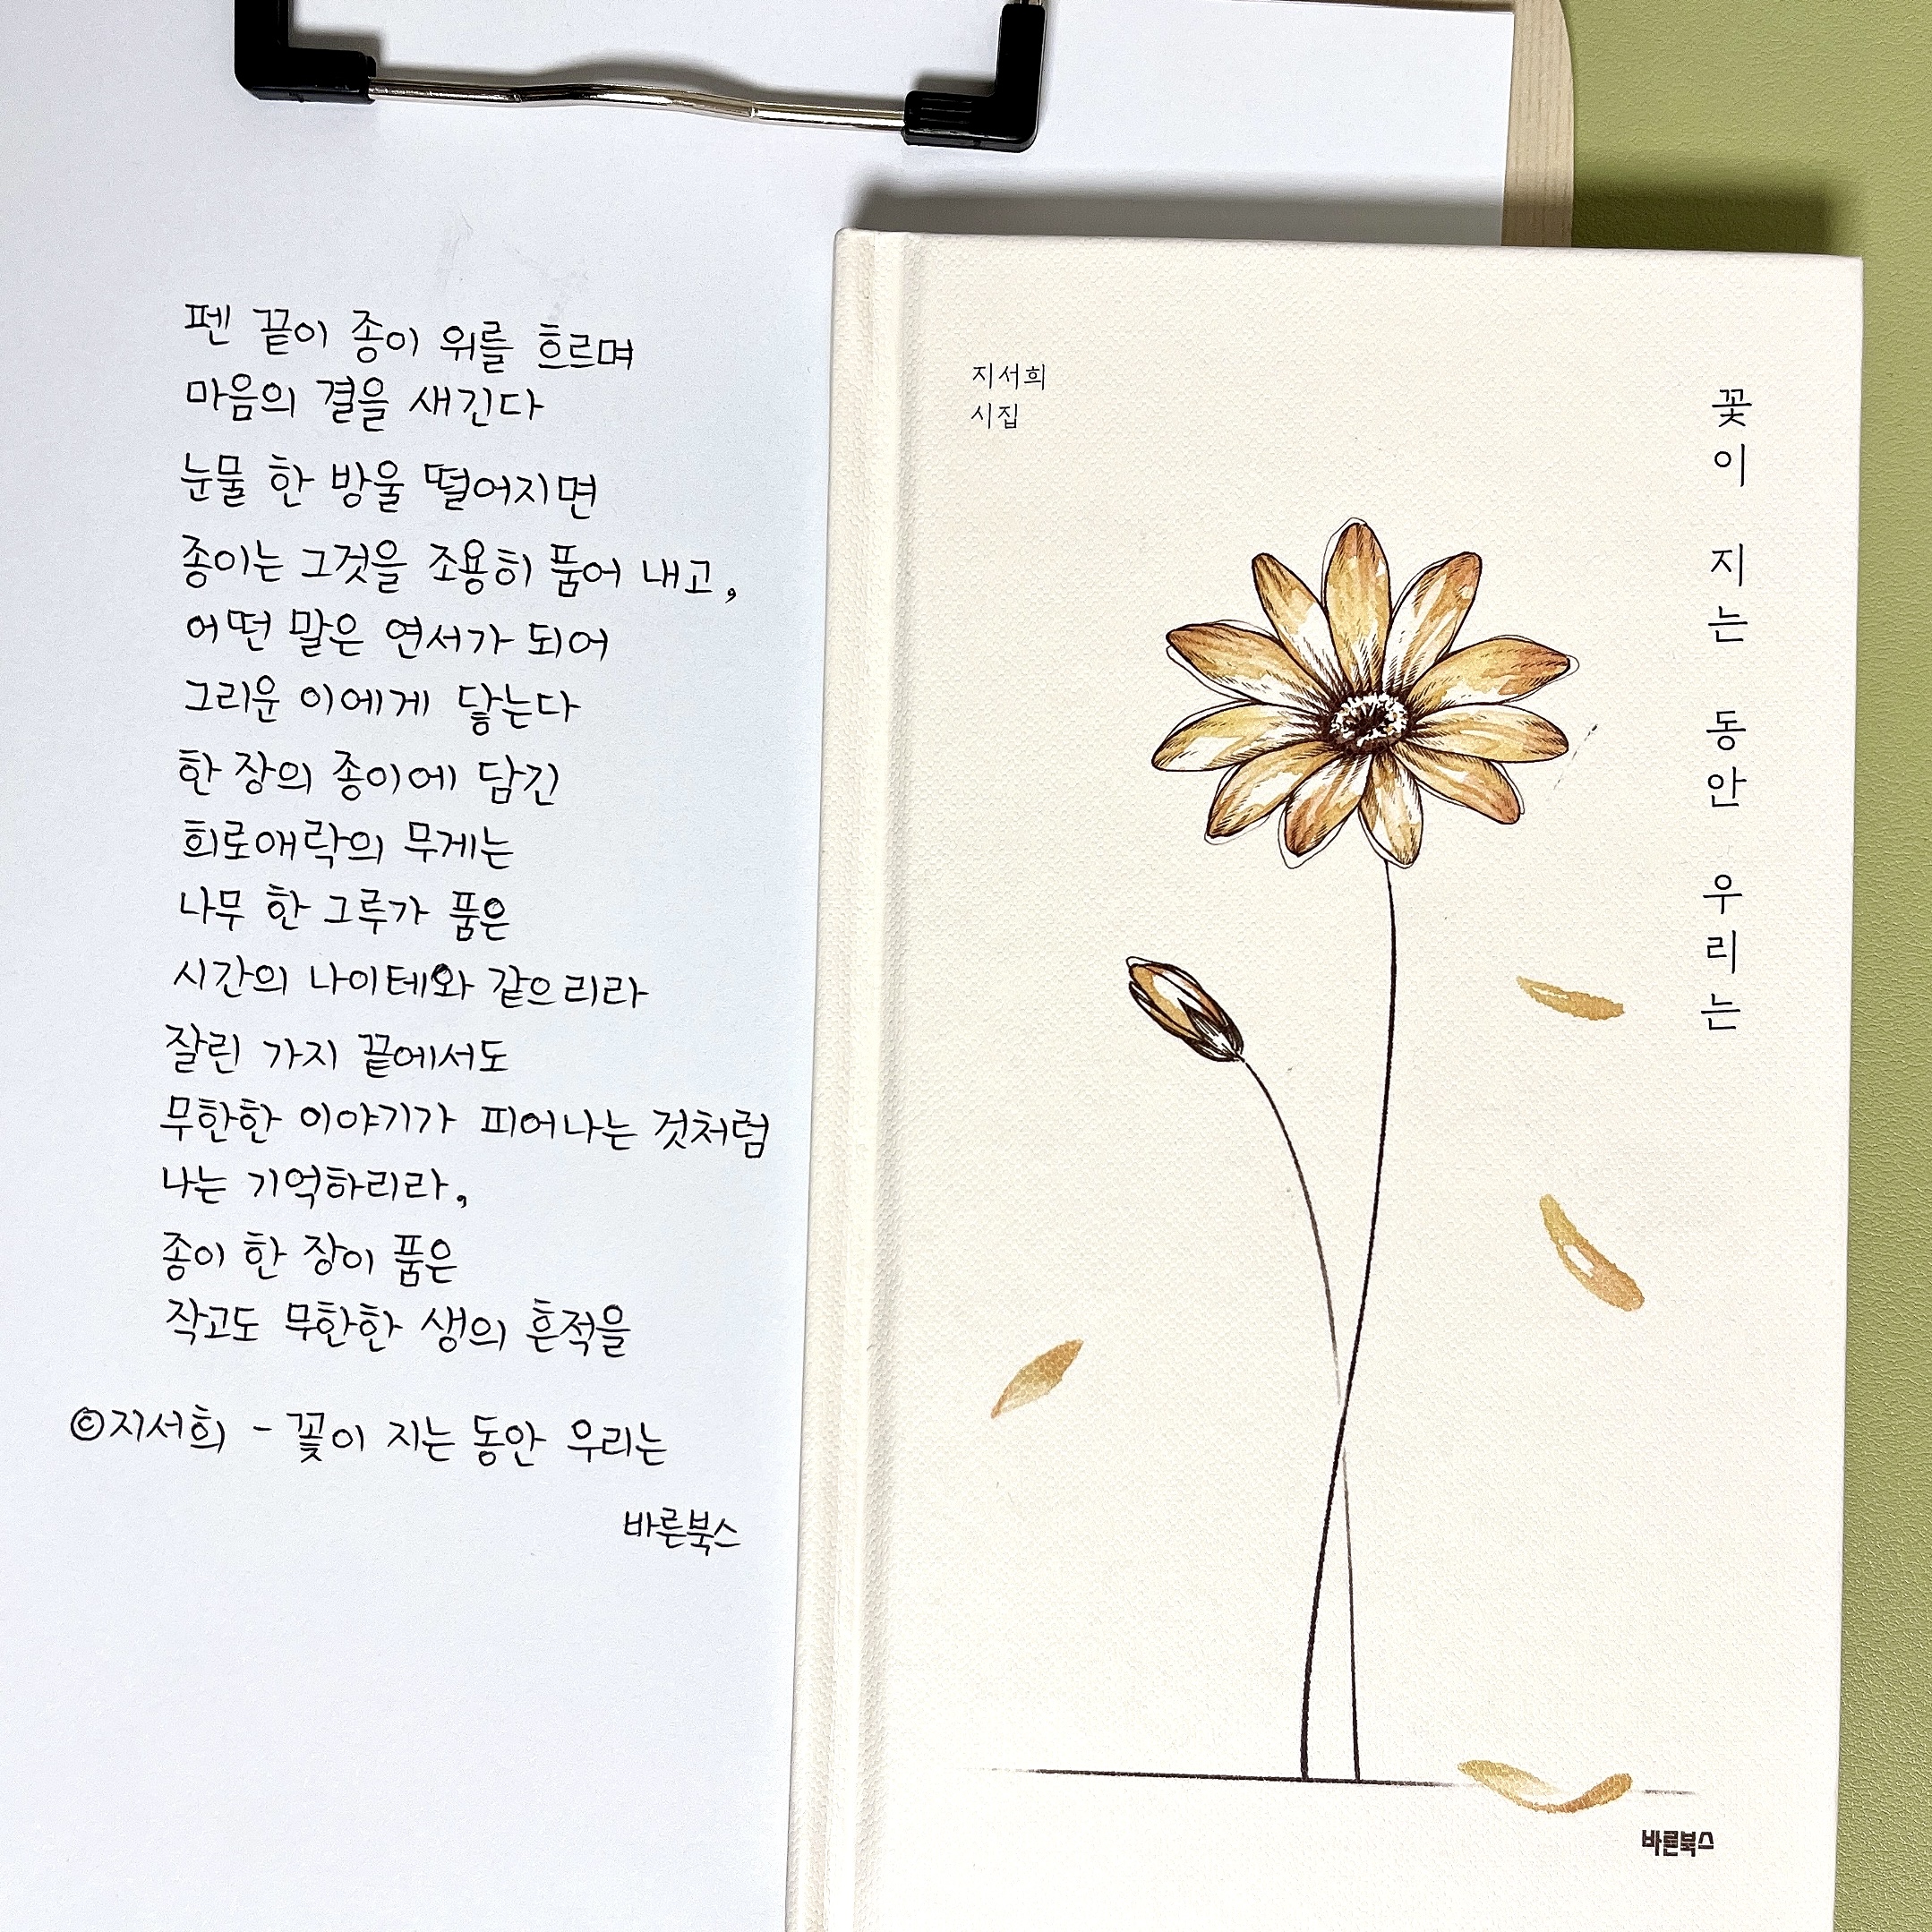 펜 끝이 종이 위를 흐르며
마음의 결을 새긴다
눈물 한 방울 떨어지면
종이는 그것을 조용히 품어 내고,
어떤 말은 연서가 되어
그리운 이에게 닿는다
한 장의 종이에 담긴
희로애락의 무게는
나무 한 그루가 품은
시간의 나이테와 같으리라
잘린 가지 끝에서도
무한한 이야기가 피어나는 것처럼
나는 기억하리라,
종이 한 장이 품은
작고도 무한한 생의 흔적을
©지서희 - 꽃이 지는 동안 우리는
바른북스
지서희
시집
꽃이 지는 동안 우리는
바른북스